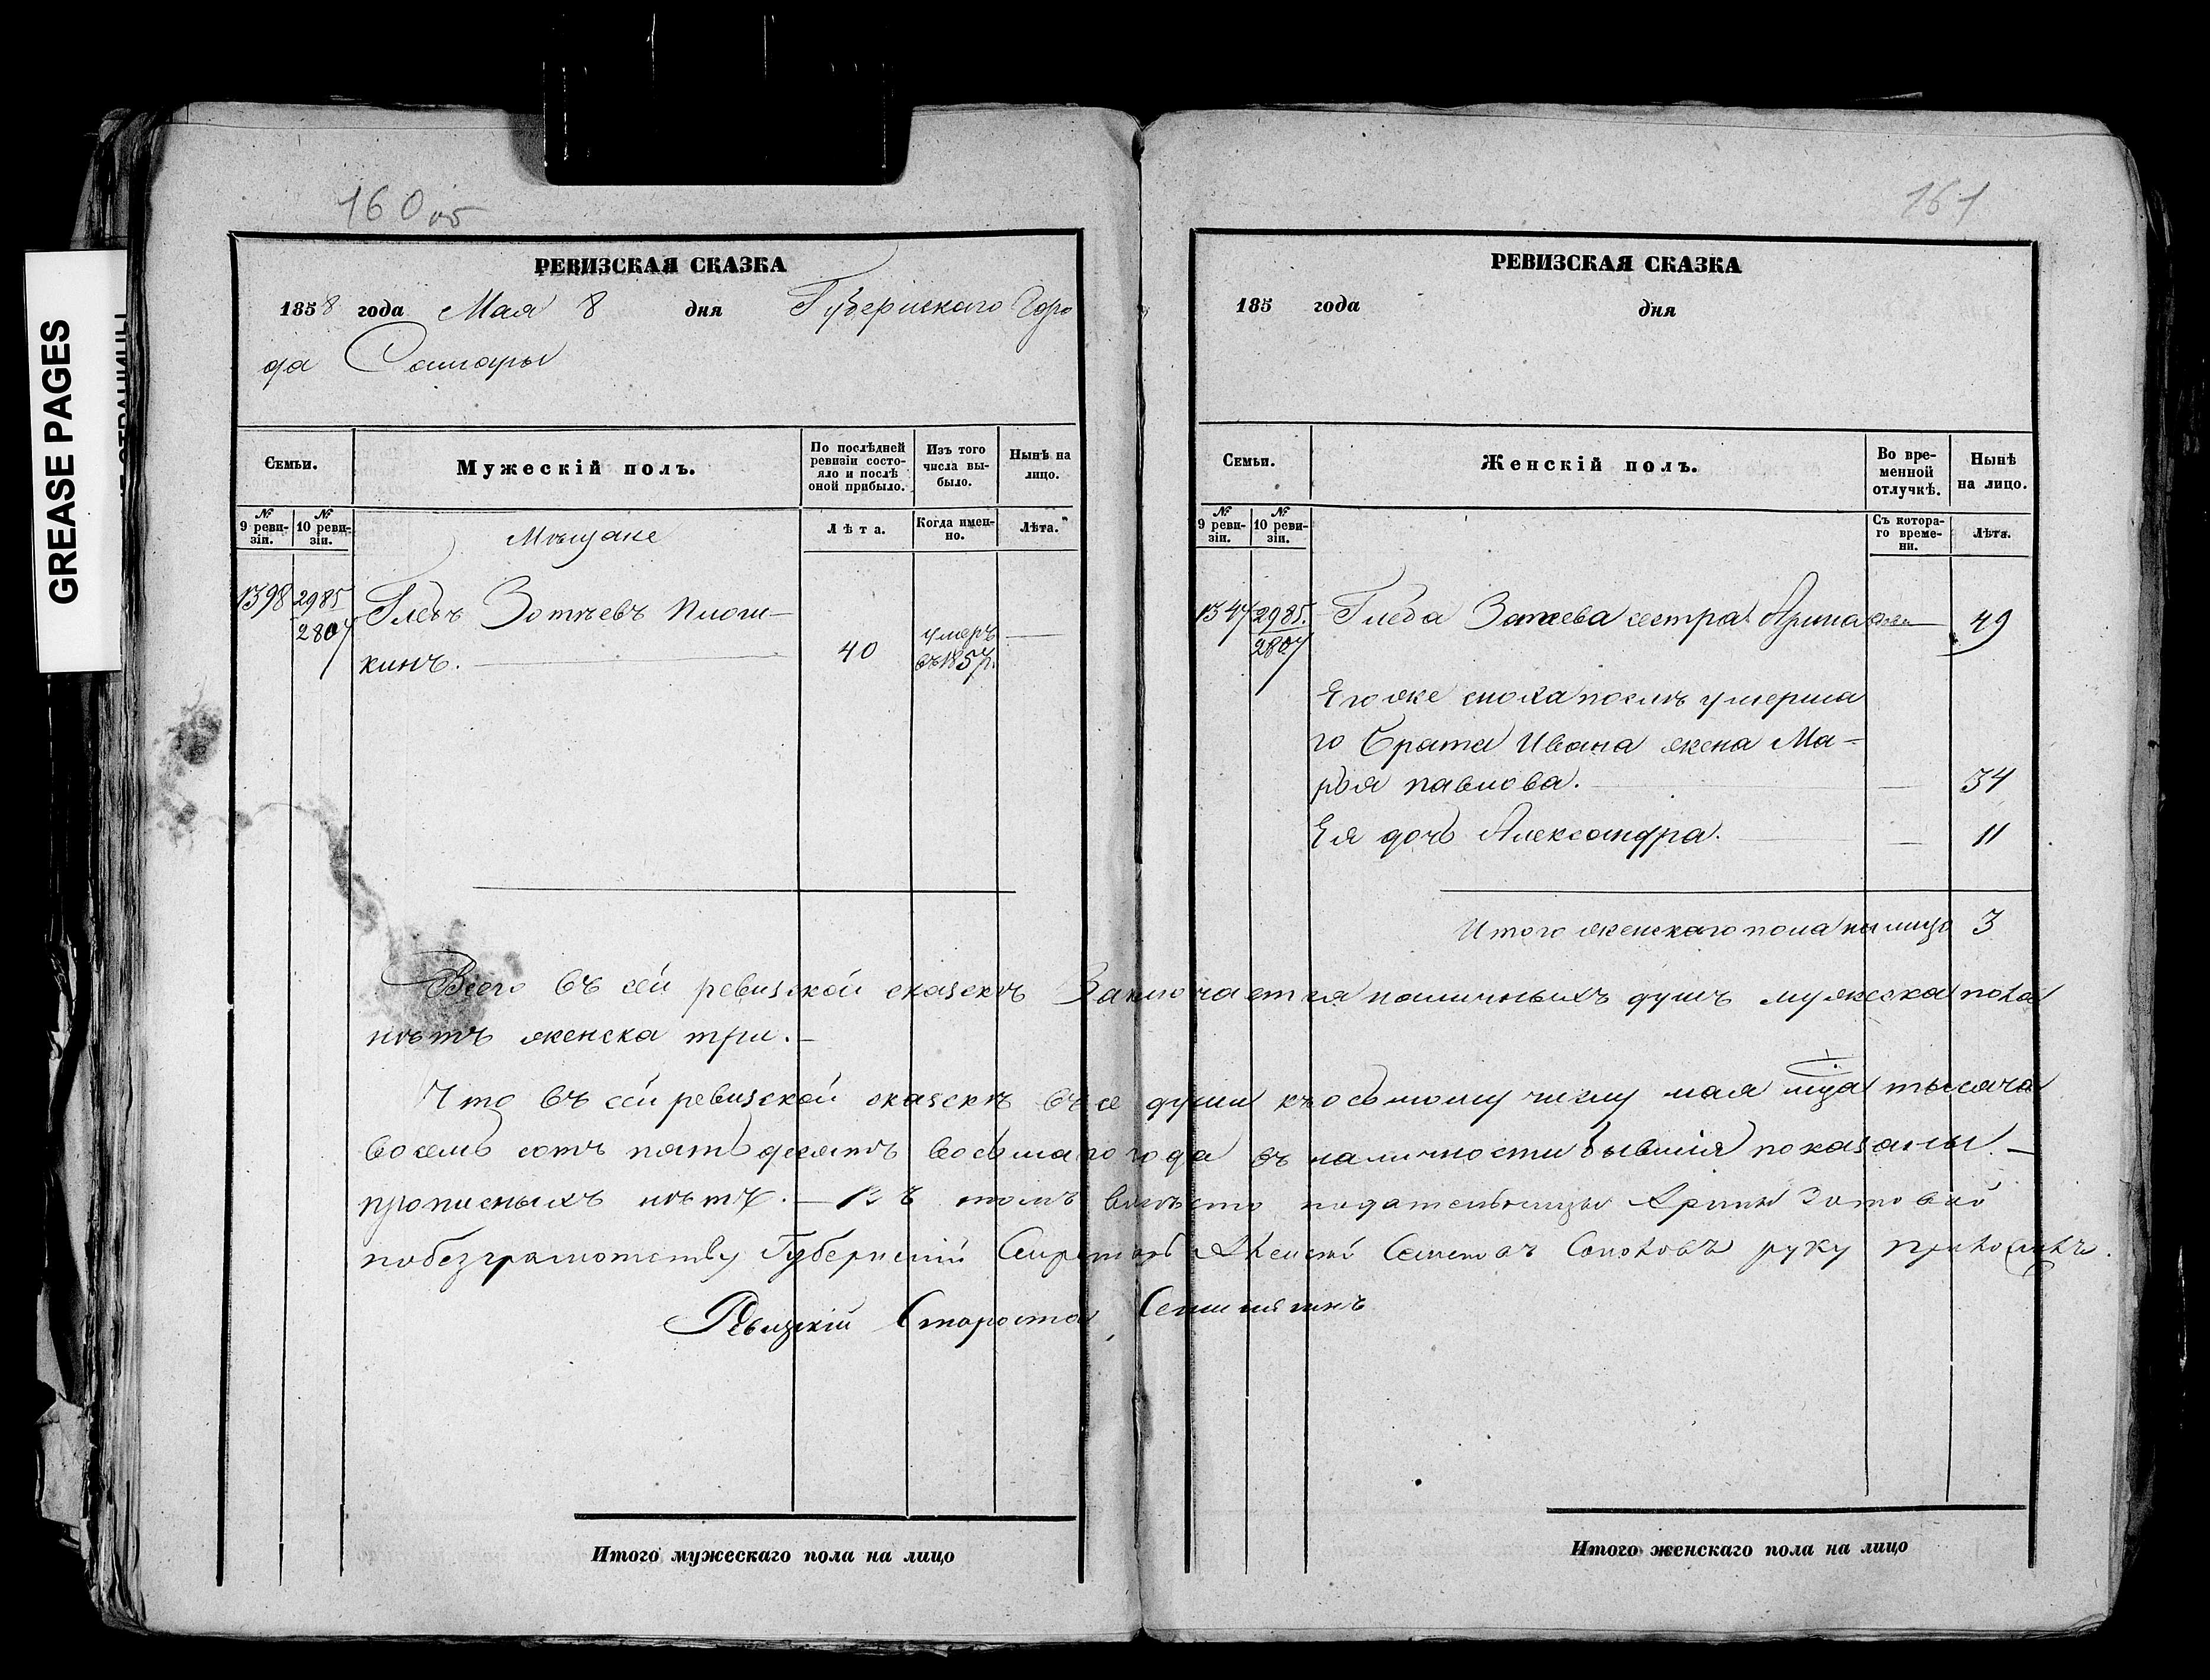 GREASE PAGES
160 об
РЕВИЗСКАЯ СКАЗКА
1858 года Мая 8 дня Губернскаго Горо
да Самары
Семьи.
Мужескій полъ.
По послѣдней ревизіи состояло и послѣ оной прибыло.
Изъ того числа выбыло.
Нынѣ на лицо.
№ 9 ревизіи.
№ 10 ревизіи.
Мѣщане
Лѣта.
Когда именно.
Лѣта.
1398 2985 Глебъ Зотѣевъ
2807
кинъ. 40 умеръ въ 1857г.
Всего въ сей ревизской сказскѣ Заключается наличныхъ душъ мужеска пола
нѣтъ женска три.
Что въ сей ревизской сказскѣ все души къ осьмому числу мая мца тысяча
восемь сотъ пятьдесятъ восьмаго года въ наличности бывшія показаны.
прописныхъ нѣтъ. — Въ томъ вмѣсто подательницы Арины Зотовой
по безграмотству Губернскій Семенъ руку приложилъ.
Староста
Итого мужескаго пола на лицо
161
РЕВИЗСКАЯ СКАЗКА
185 года дня
Семьи.
Женскій полъ.
Во временной отлучкѣ.
Нынѣ на лицо.
№ 9 ревизіи.
№ 10 ревизіи.
Съ котораго времени.
Лѣта.
1347 2985. Глеба Зотеева сестра Арина 49
2807
Его же сноха послѣ умерша
го брата Ивана жена Ма-
рья павлова. — 34
Ея дочь Александра. — 11
Итого женскаго пола на лицо 3
Итого женскаго пола на лицо